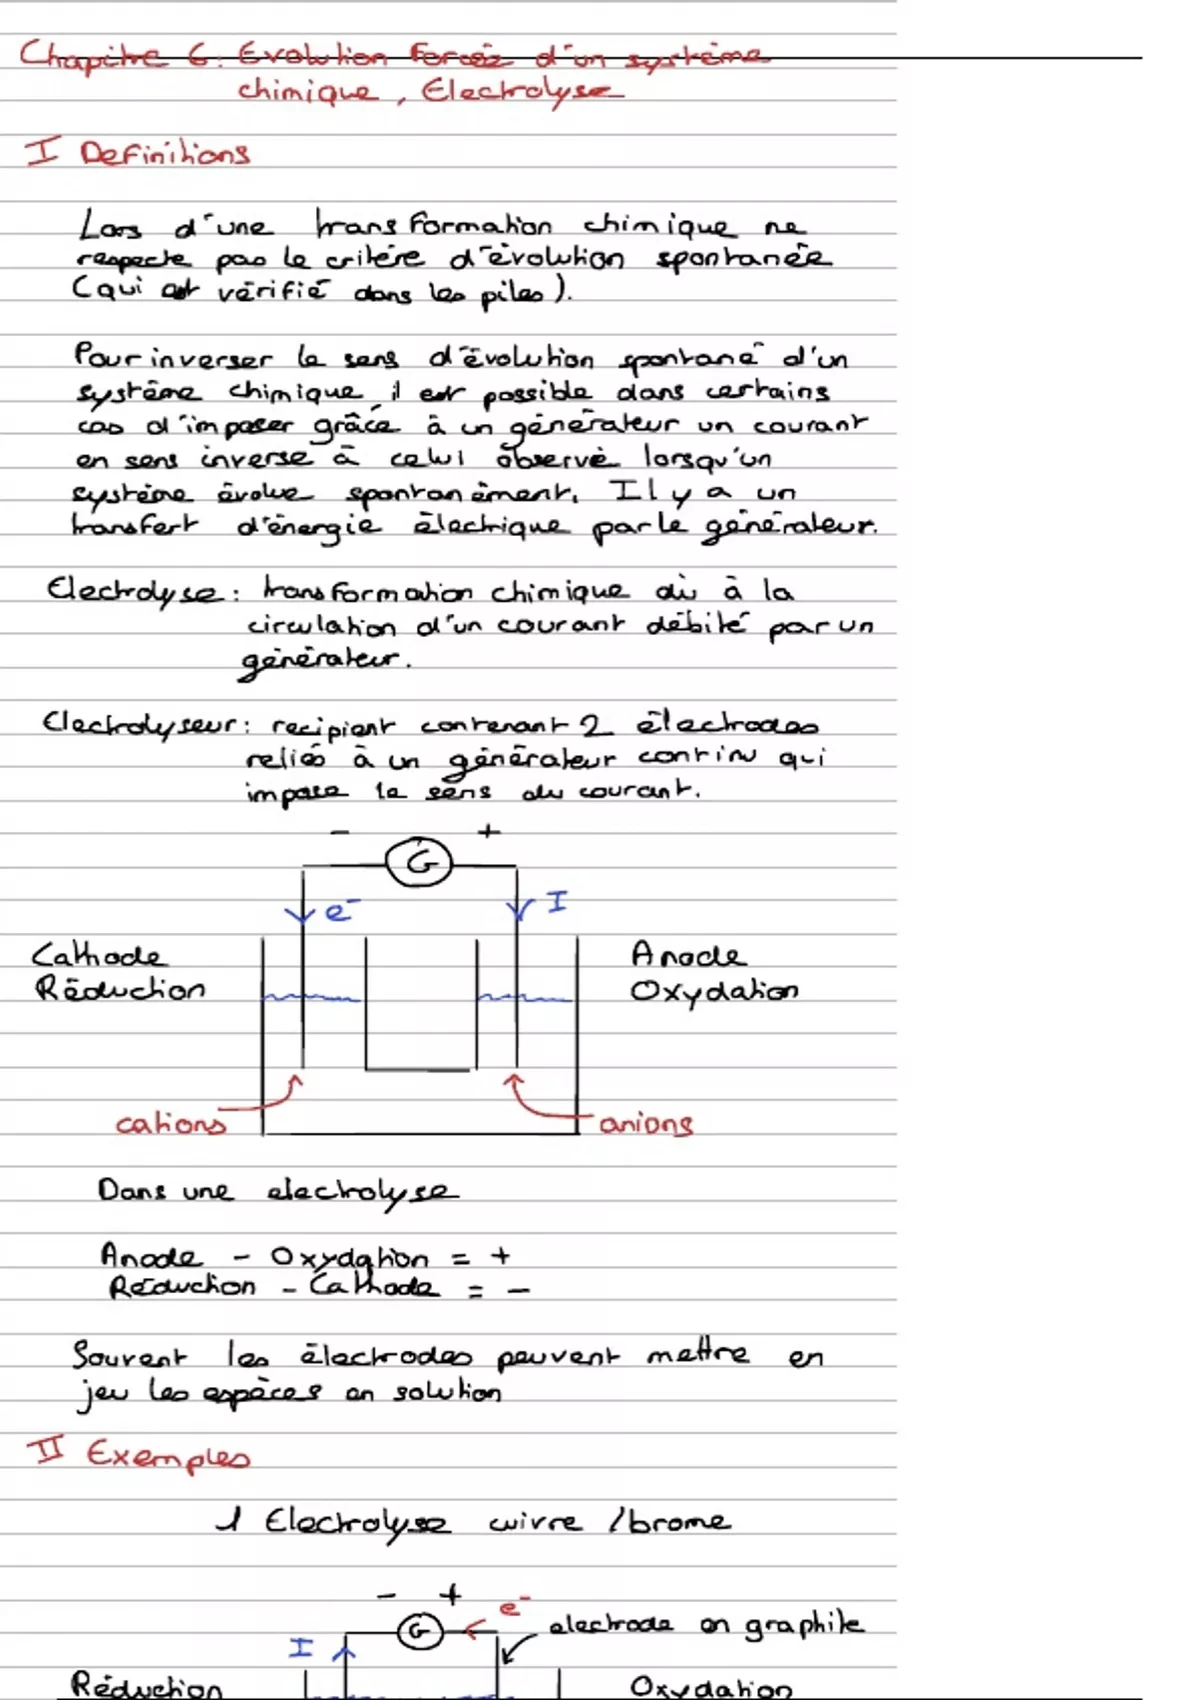 Chapitre 6: Evolution Forcée d'un système
chimique, Electrolyse
I Definitions
Lors d'une transformation chimique ne
respecte pas le critère d'évolution spontanée
(qui est vérifié dans les piles).
Pour inverser le sens d'évolution spontané d'un
système chimique, il est possible dans certains
cas d'imposer grâce à un générateur un courant
en sens inverse à celui observé lorsqu'un
système évolue spontanément. Il y a un
transfert d'énergie électrique par le générateur.
Electrolyse: transformation chimique dû à la
circulation d'un courant débité par un
générateur.
Electrolyseur: recipient contenant 2 électrodes
reliés à un générateur continu qui
impose le sens du courant.
- G +
e⁻ I
Cathode Anode
Réduction Oxydation
cations anions
Dans une electrolyse
Anode - Oxydation = +
Réduction - Cathode = -
Souvent les électrodes peuvent mettre en
jeu les espèces en solution
II Exemples
1 Electrolyse cuivre /brome
- + e⁻
I G electrode en graphite
Réduction Oxydation